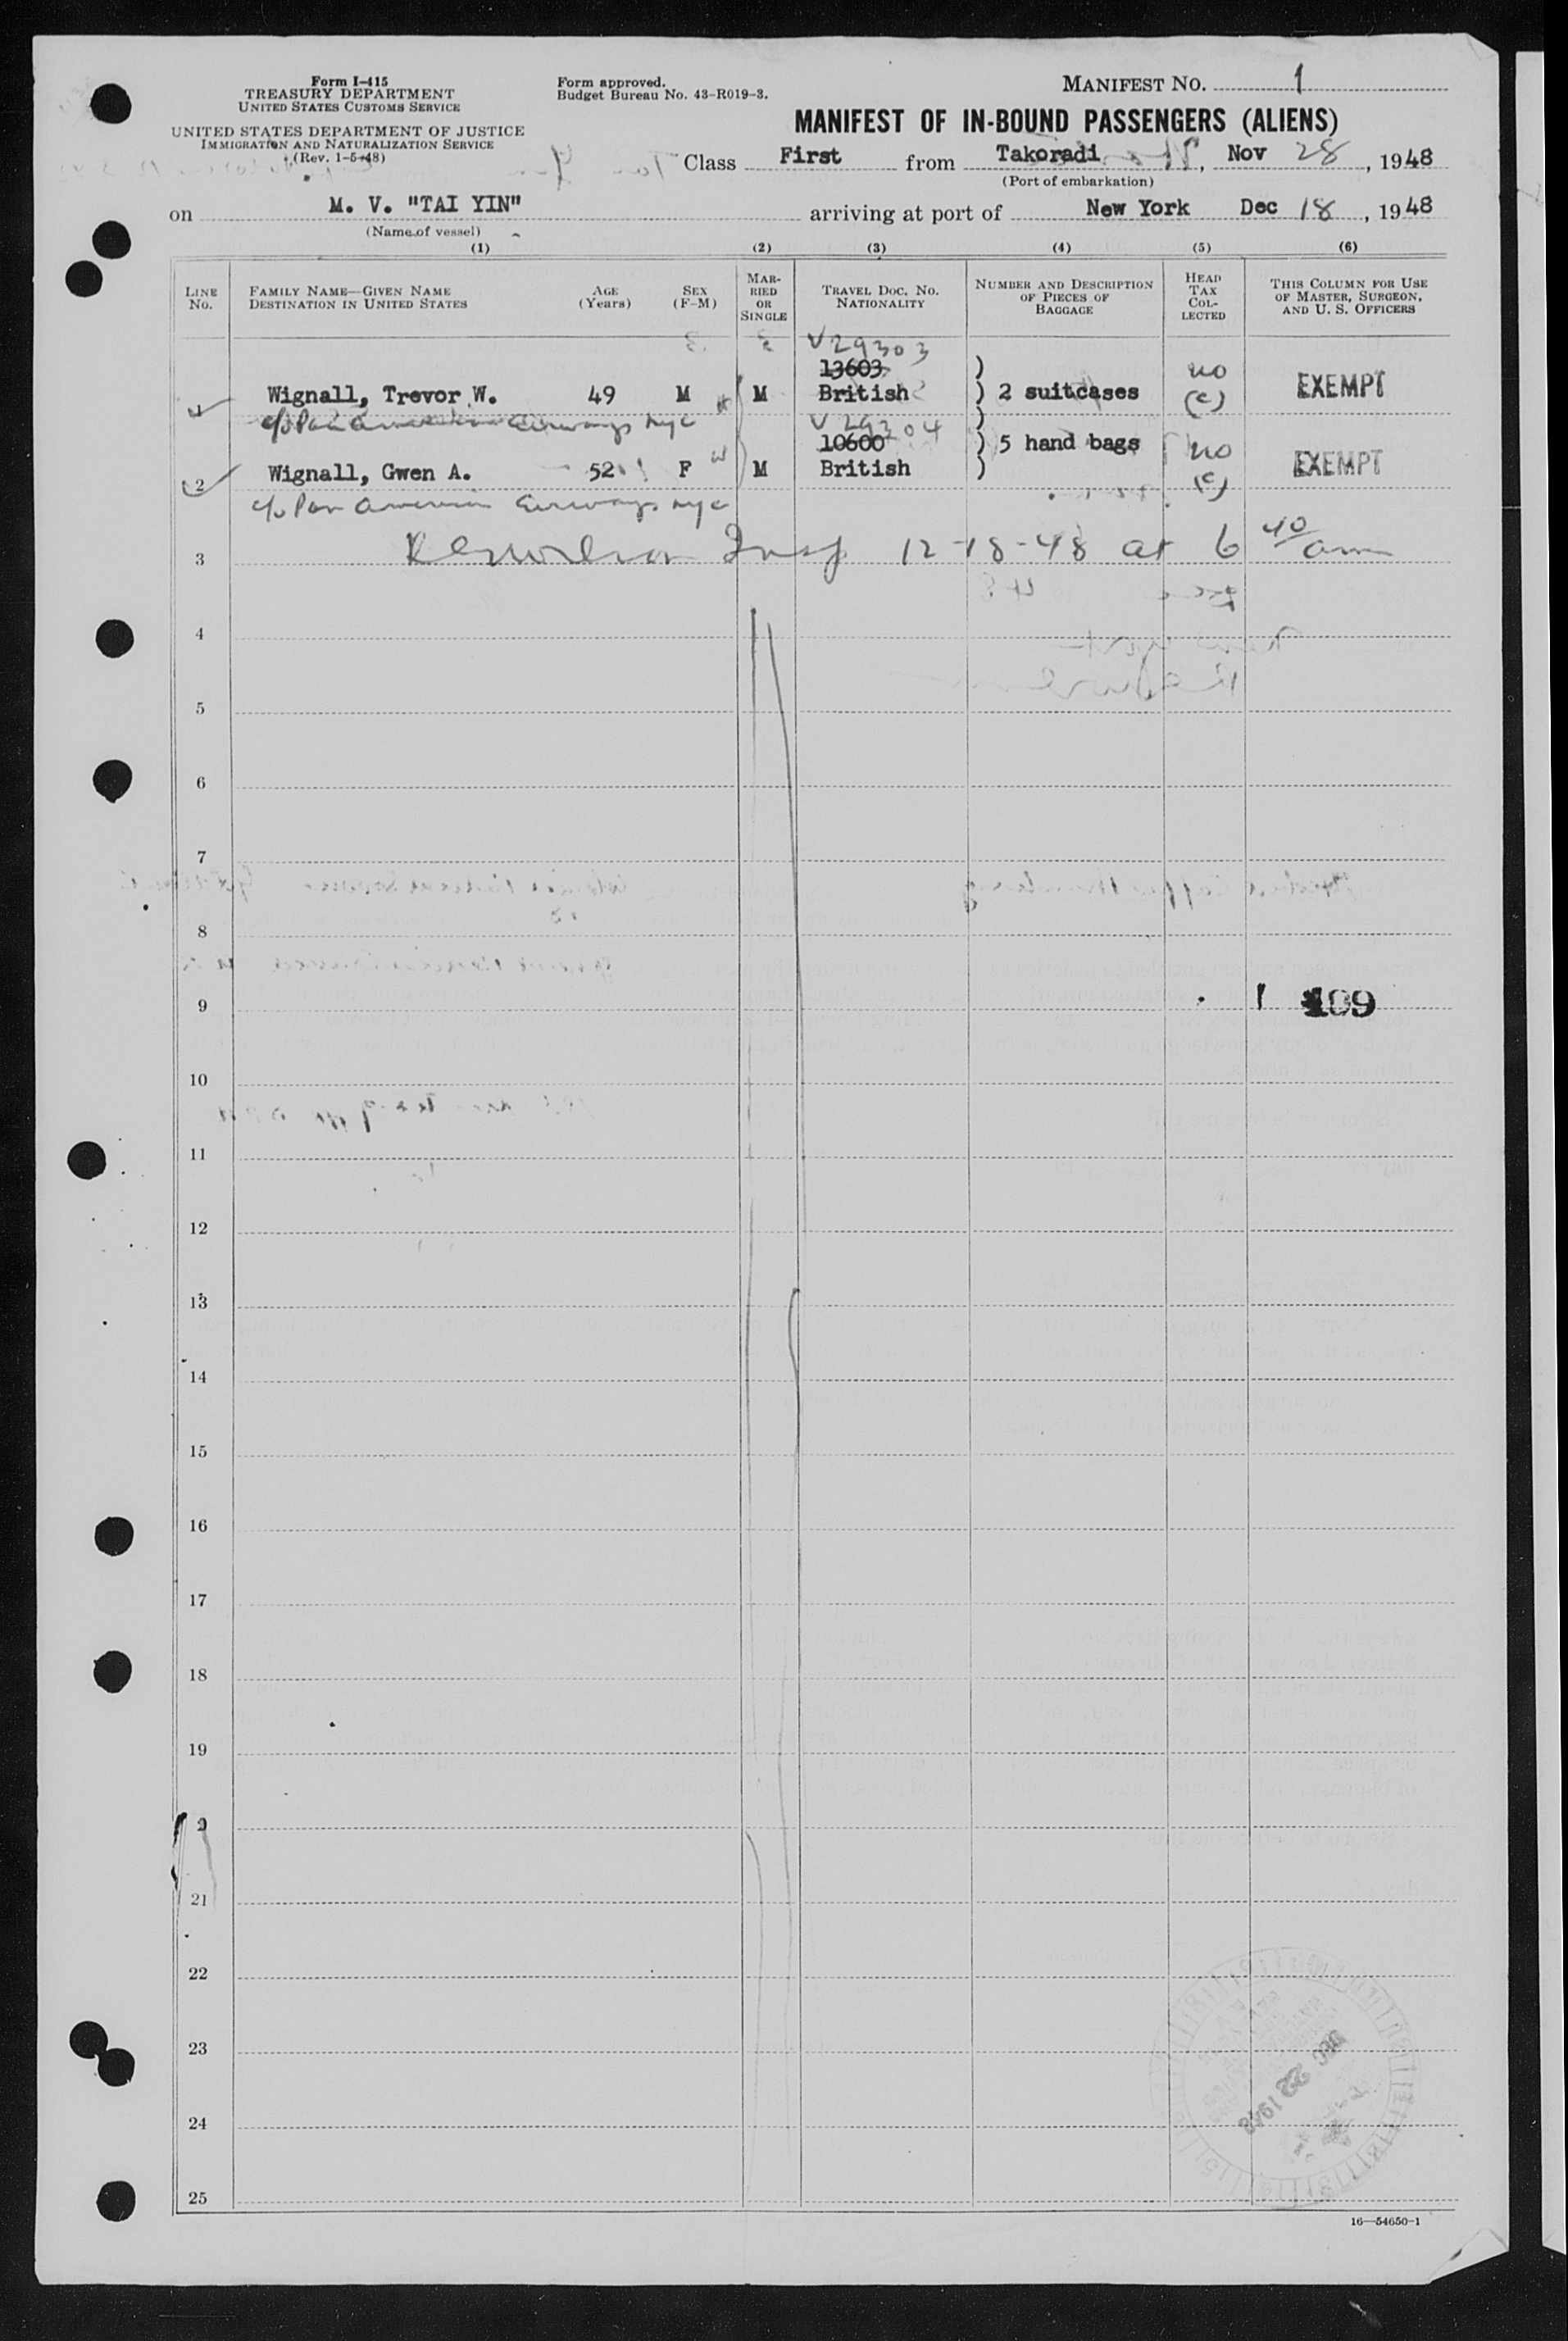 Form I-415
TREASURY DEPARTMENT
UNITED STATES CUSTOMS SERVICE
UNITED STATES DEPARTMENT OF JUSTICE
IMMIGRATION AND NATURALIZATION SERVICE
(Rev. 1-5-48)
Form approved.
Budget Bureau No. 43-R019-3.
MANIFEST NO. 1
MANIFEST OF IN-BOUND PASSENGERS (ALIENS)
Class First from Takoradi, Nov 28, 1948
(Port of embarkation)
on M. V. "TAI YIN" arriving at port of New York Dec 18, 1948
(Name of vessel)
(1) (2) (3) (4) (5) (6)
LINE NO.
FAMILY NAME—GIVEN NAME
DESTINATION IN UNITED STATES
AGE (Years)
SEX (F-M)
MARRIED OR SINGLE
TRAVEL DOC. NO.
NATIONALITY
NUMBER AND DESCRIPTION OF PIECES OF BAGGAGE
HEAD TAX COLLECTED
THIS COLUMN FOR USE OF MASTER, SURGEON, AND U. S. OFFICERS
V29303
13603
1 Wignall, Trevor W. 49 M M British ) 2 suitcases no (c) EXEMPT
c/o Pan American Airways nyc
V29304
10600 ) 5 hand bags
2 Wignall, Gwen A. 52 F W M British ) no (c) EXEMPT
c/o Pan American Airways nyc
3 Insp 12-18-48 at 6 40/am
4
5
6
7
8
9 109
10
11
12
13
14
15
16
17
18
19
21
22
23
24
25
DEC 22 1948
16—54650-1